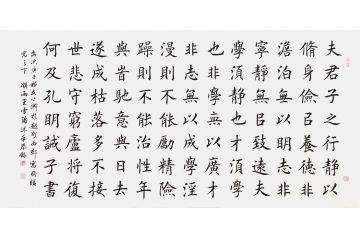 夫君子之行靜以
脩身儉以養德非
澹泊無以明志非
寧靜無以致遠夫
學須靜也才須學
也非學無以廣才
非志無以成學淫
漫則不能勵精險
躁則不能治性年
與旹馳意與日去
遂成枯落多不接
世悲守窮廬將復
何及孔明誡子書